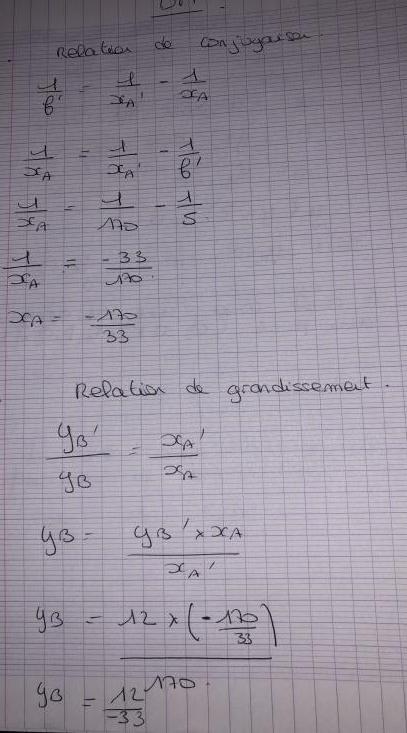 Relation de conjugaison.
1/f' = 1/xA' - 1/xA
1/xA = 1/xA' - 1/f'
1/xA = 1/170 - 1/5
1/xA = -33/170.
xA = -170/33
Relation de grandissement.
yB'/yB = xA'/xA
yB = yB' × xA / xA'
yB = 12 × (-170/33) / 170.
yB = 12/-33